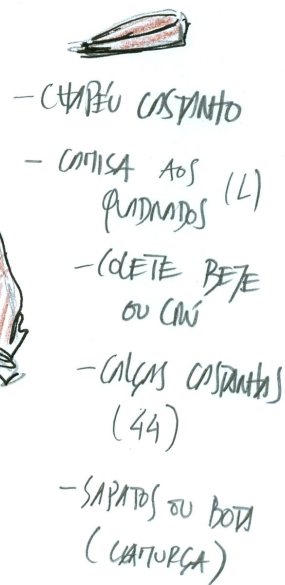 - CHAPÉU CASTANHO
- CAMISA AOS (L)
QUADRADOS
- COLETE BEJE
OU CRÚ
- CALÇAS CASTANHAS
(44)
- SAPATOS OU BOTA
(CAMURÇA)